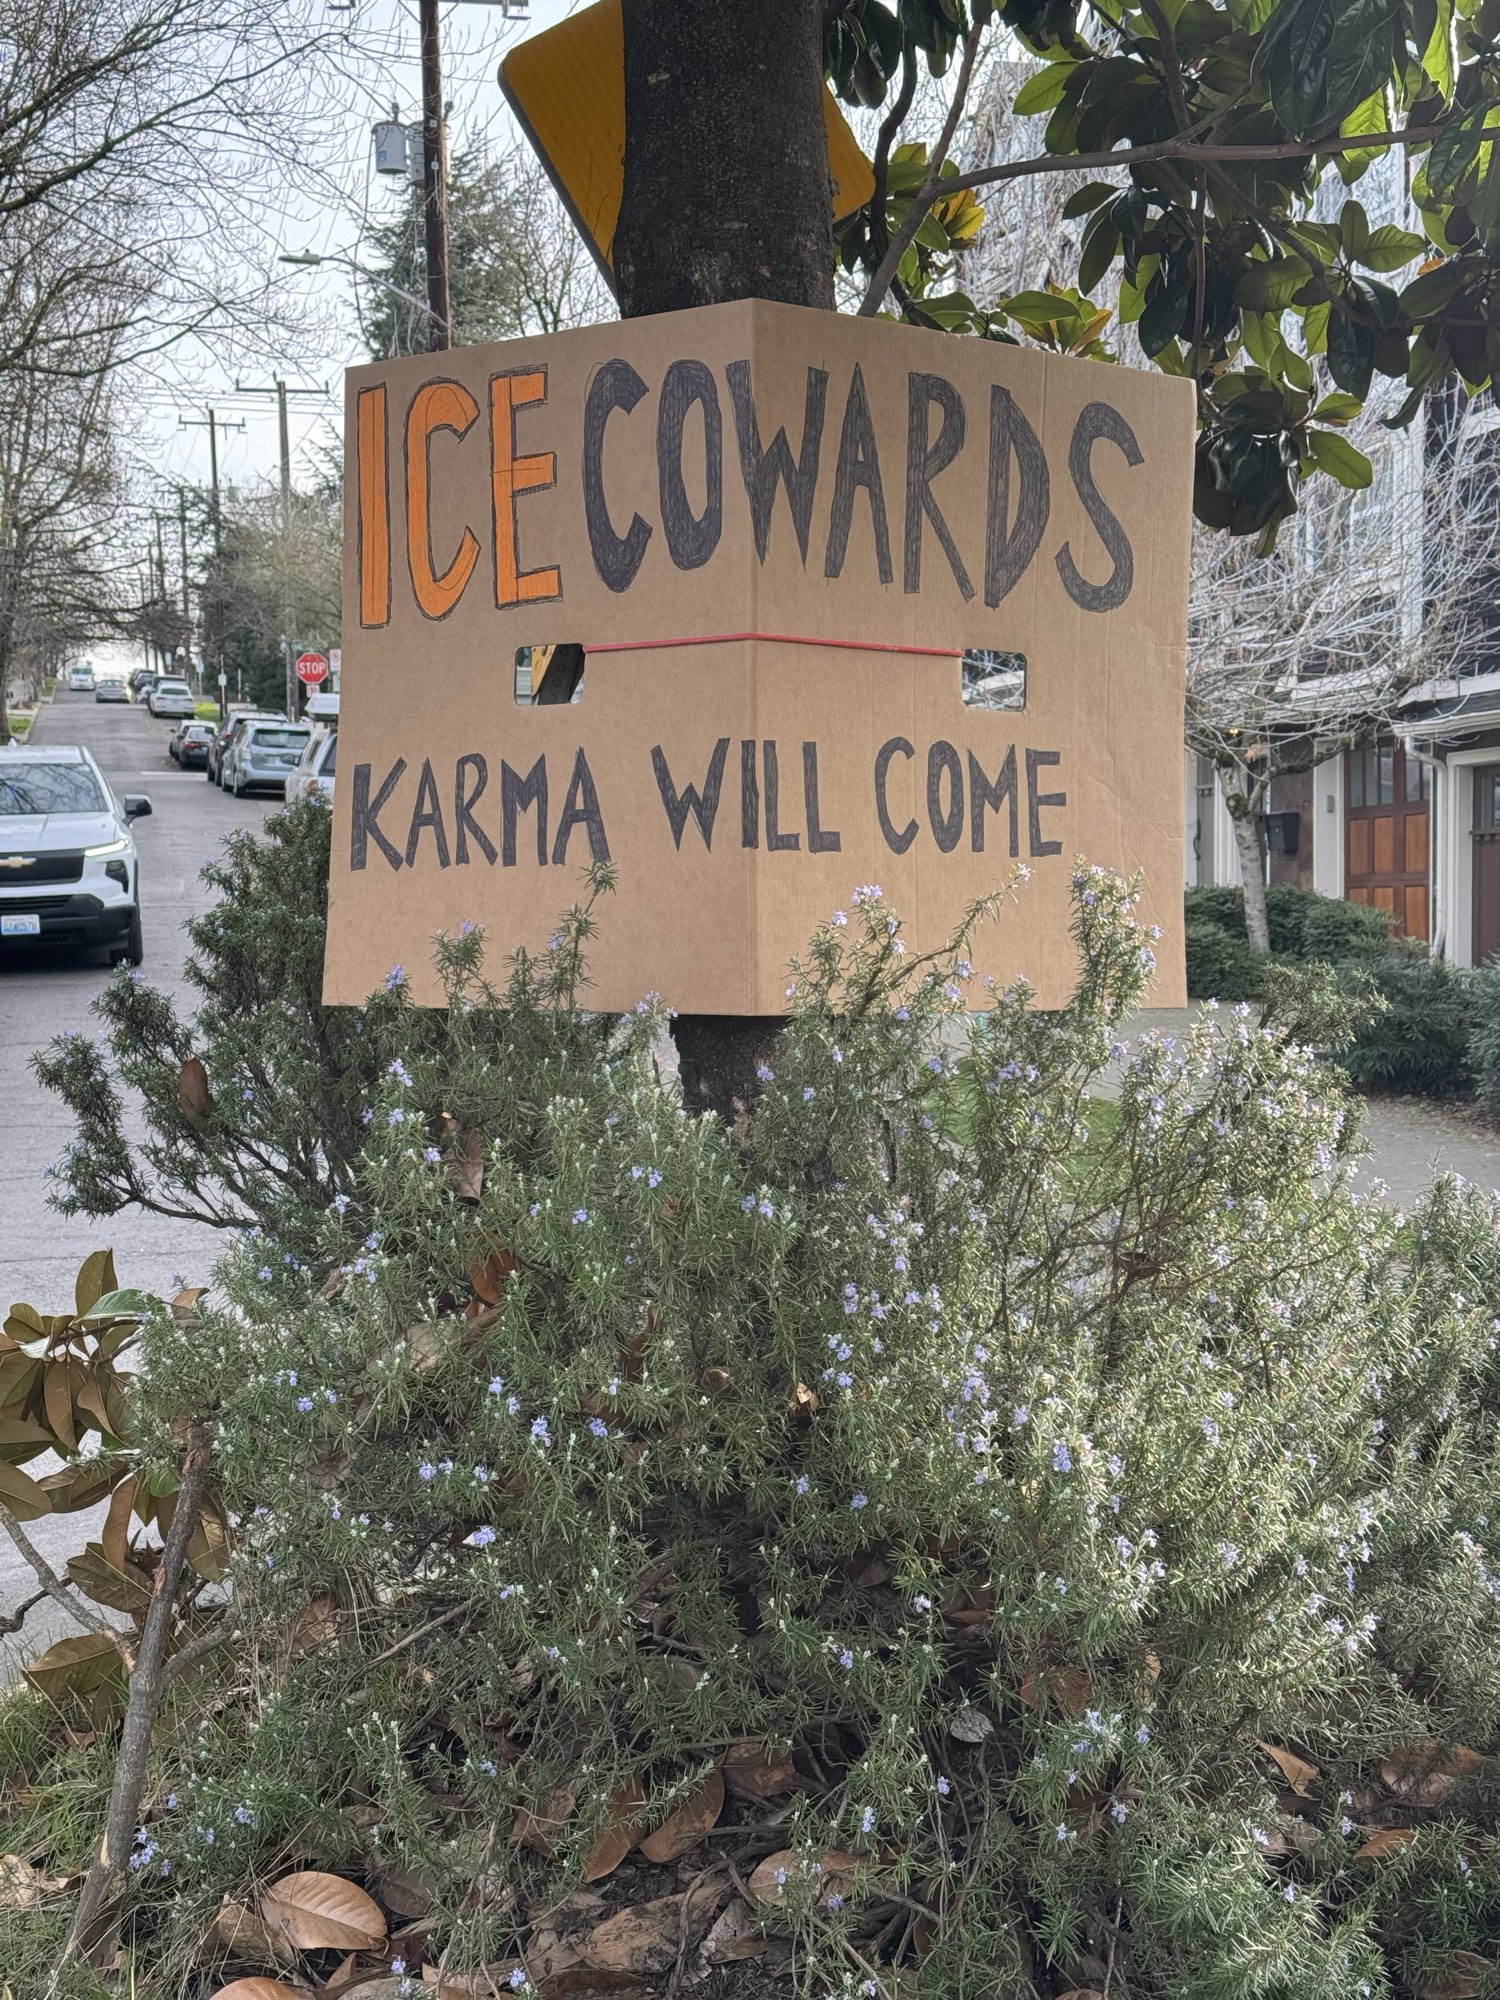 ICE COWARDS
KARMA WILL COME
STOP